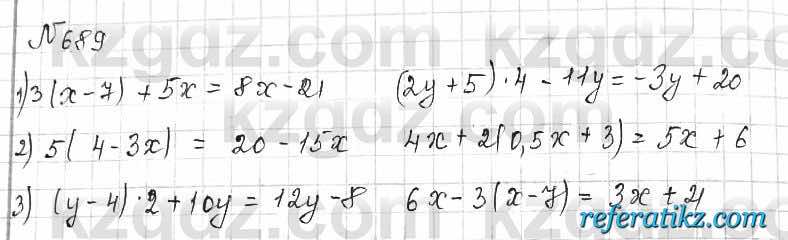 №689
1) 3(x-7) + 5x = 8x-21 (2y+5)·4 - 11y = -3y + 20
2) 5(4-3x) = 20 - 15x 4x + 2(0,5x + 3) = 5x + 6
3) (y-4)·2 + 10y = 12y - 8 6x - 3(x-7) = 3x + 21
kzgdz.com kzgdz.com
kzgdz.com
referatikz.com